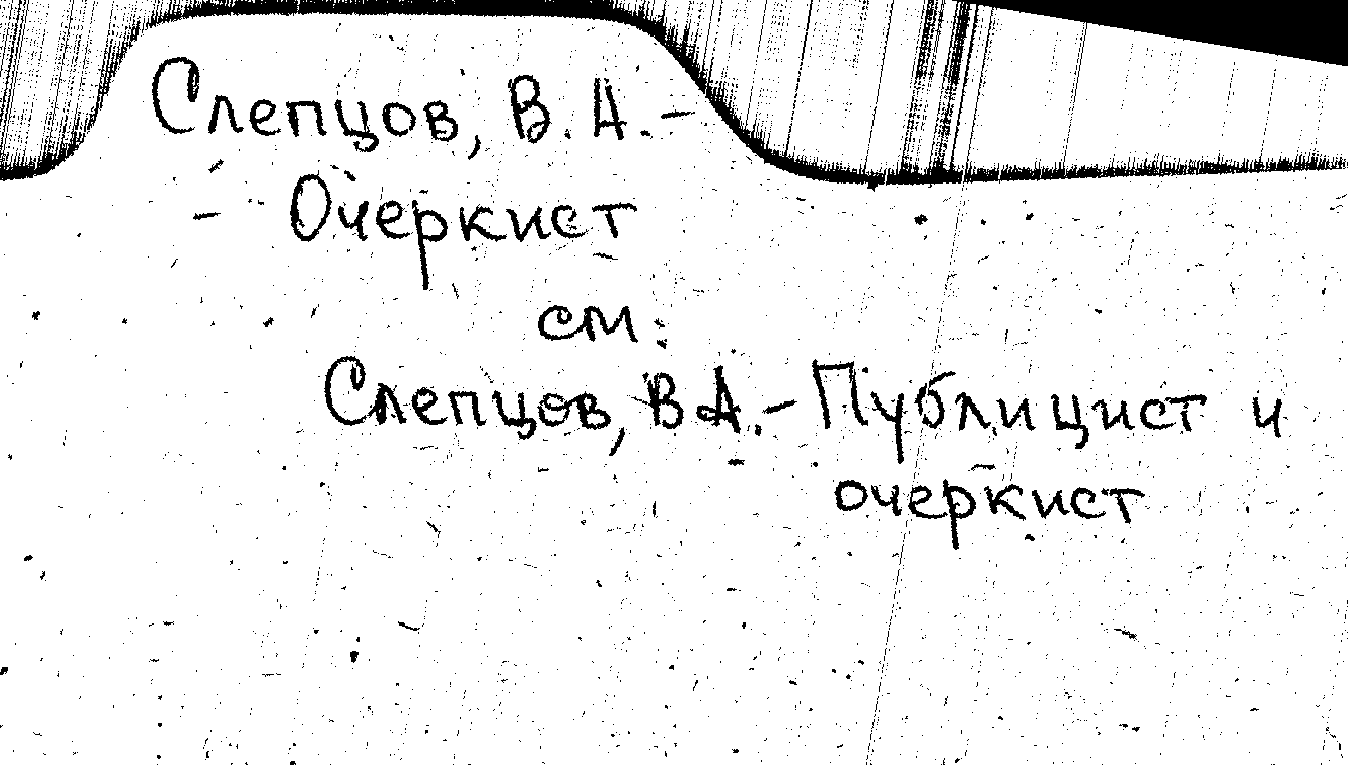 Слепцов, В. А. –
– Очеркист
см:
Слепцов, В А. – Публицист и
очеркист